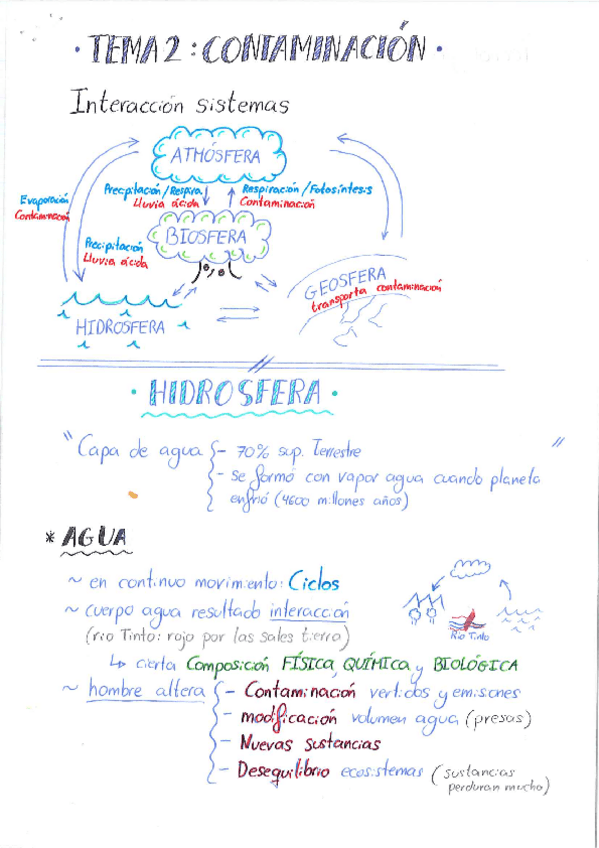 · TEMA 2 : CONTAMINACIÓN ·
Interacción sistemas
ATMÓSFERA
Evaporación
Contaminación
Precipitación/Respira.
Lluvia ácida
Respiración/Fotosíntesis
Contaminación
Precipitación
Lluvia ácida
BIOSFERA
GEOSFERA
transporta contaminación
HIDROSFERA
· HIDROSFERA ·
" Capa de agua { - 70% sup. Terrestre "
- se formó con vapor agua cuando planeta
enfrió (4600 millones años)
* AGUA
~ en continuo movimiento: Ciclos
~ cuerpo agua resultado interacción
(rio Tinto: rojo por las sales tierra)
Rio Tinto
↳ cierta Composición FÍSICA, QUÍMICA y BIOLÓGICA
~ hombre altera { - Contaminación vertidos y emisones
- modificación volumen agua (presas)
- Nuevas sustancias
- Desequilibrio ecosistemas (sustancias
perduran mucho)